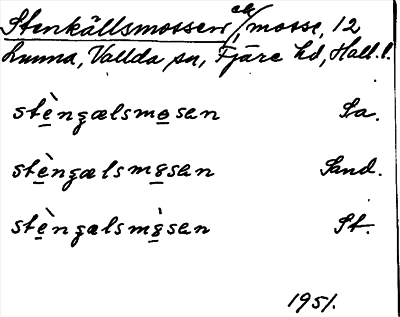 Stenkällsmossen ck/mosse, 12
Lunna, Vallda sn, Fjäre hd, Hall. l.
stèngælsmosan Sa.
stèngælsmosan Sand.
stèngælsmòsan St.
1951.